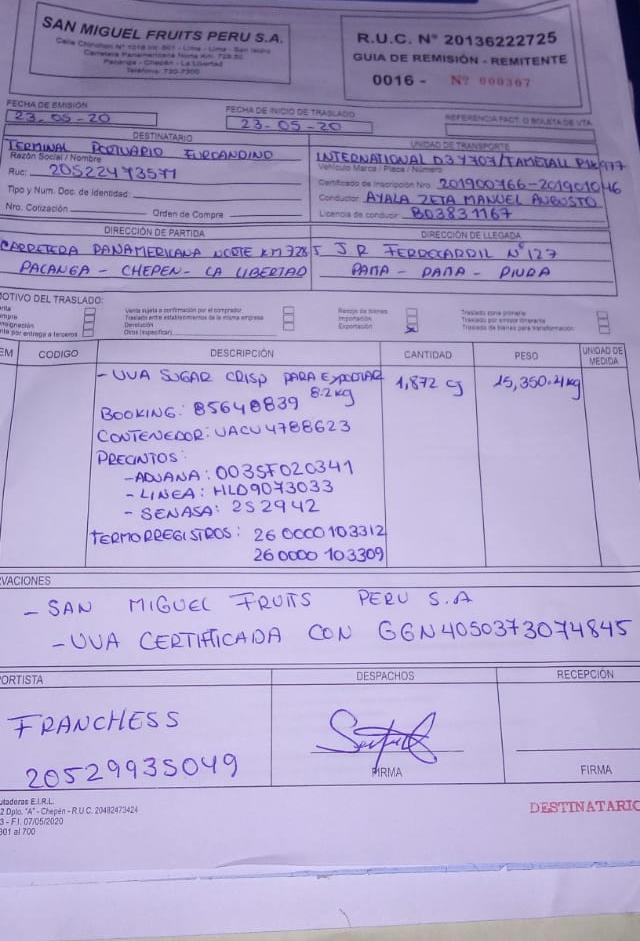 SAN MIGUEL FRUITS PERU S.A.
Carretera Panamericana Norte Km. 728.50
Pacanga - Chepén - La Libertad
R.U.C. N° 20136222725
GUIA DE REMISIÓN - REMITENTE
0016 - N° 000367
FECHA DE EMISIÓN
23-05-20
FECHA DE INICIO DE TRASLADO
23-05-20
REFERENCIA FACT. O BOLETA DE VTA.
DESTINATARIO
TERMINAL PORTUARIO EUROANDINO
Razón Social / Nombre
Ruc: 20522473571
Tipo y Num. Doc. de Identidad:
Nro. Cotización: Orden de Compra:
UNIDAD DE TRANSPORTE
INTERNATIONAL D3Y707/
Vehículo Marca / Placa / Número
Certificado de Inscripción Nro. 201900766-201901046
Conductor: AYALA ZETA MANUEL AUGUSTO
Licencia de conducir: B03831167
DIRECCIÓN DE PARTIDA
CARRETERA PANAMERICANA NORTE KM 728.5
PACANGA - CHEPEN - LA LIBERTAD
DIRECCIÓN DE LLEGADA
J.R FERROCARRIL N°127
PAITA - PAITA - PIURA
MOTIVO DEL TRASLADO:
Venta sujeta a confirmación por el comprador
Traslado entre establecimientos de la misma empresa
Devolución
Otros (especificar)
Recojo de bienes
Importación
Exportación
Traslado zona primaria
Traslado por emisor itinerante
Traslado de bienes para transformación
CODIGO DESCRIPCIÓN CANTIDAD PESO UNIDAD DE MEDIDA
- UVA SUGAR CRISP PARA EXPORTAR 1,872 cj 15,350.4kg
8.2kg
BOOKING: 85640839
CONTENEDOR: UACU4788623
PRECINTOS:
- ADUANA: 003SF020341
- LINEA: HLD9073033
- SENASA: 252942
TERMORREGISTROS: 26 0000 103312
26 0000 103309
VACIONES
- SAN MIGUEL FRUITS PERU S.A
- UVA CERTIFICADA CON GGN4050373074845
PORTISTA
FRANCHESS
20529935049
DESPACHOS
FIRMA
RECEPCIÓN
FIRMA
DESTINATARIO
E.I.R.L.
2 Dpto. "A" - Chepén - R.U.C. 20482473424
3 - F.I. 07/05/2020
301 al 700